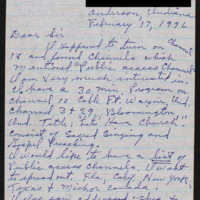 Anderson, Indiana
February 17, 1996
Dear Sir
I Happened to turn on Channel
18 and found channels which
Mentioned Public Access Channel
I am Very much interested in
I have a 30 min. Program on
Channel 10 Cable Ft. Wayne, Ind.
Channel 3 Bloomington
Ind. Title; Let's Have Church"
consist of Sacred Singing and
Gospel Preaching.
I would like to have a list of
Public access channels, I want
to spread out, Fla, Calif, New York,
Texas &